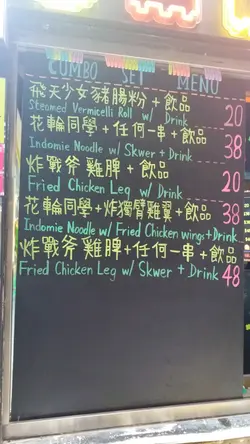 COMBO SET MENU
飛天少女豬腸粉 + 飲品
Steamed Vermicelli Roll w/ Drink 20
花輪同學 + 任何一串 + 飲品
Indomie Noodle w/ Skwer + Drink 38
炸戰斧雞脾 + 飲品
Fried Chicken Leg w/ Drink 20
花輪同學 + 炸獨臂雞翼 + 飲品 38
Indomie Noodle w/ Fried Chicken wings + Drink
炸戰斧雞脾 + 任何一串 + 飲品
Fried Chicken Leg w/ Skwer + Drink 48